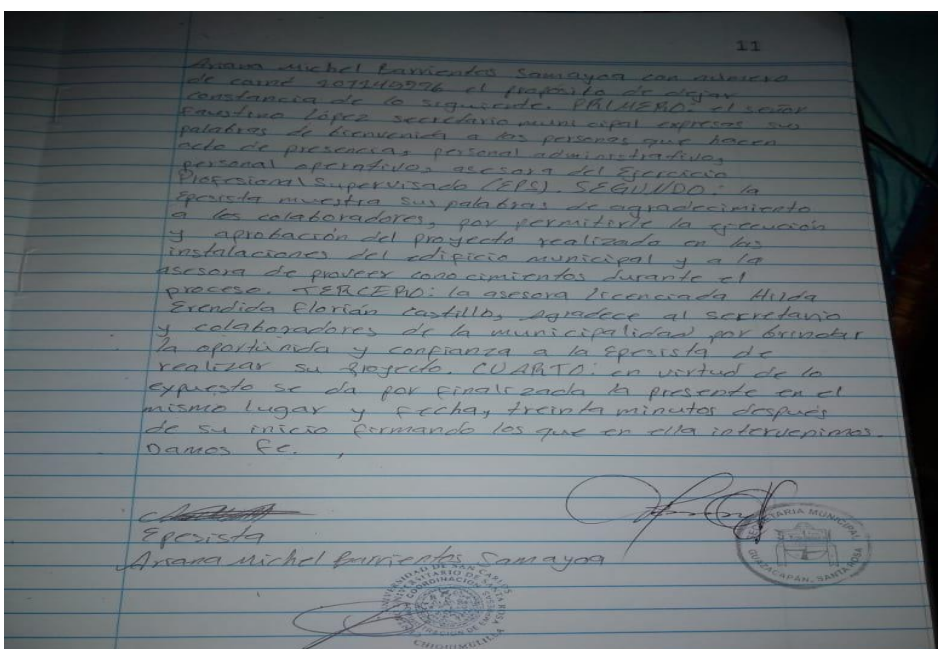 11
Ariana Michel Barrientos Samayoa con número
de carné 201240996 el propósito de dejar
constancia de lo siguiente. PRIMERO: el señor
Faustino López secretario municipal expresas sus
palabras de bienvenida a las personas que hacen
acto de presencia, personal administrativo,
personal operativo, asesora del Ejercicio
Profesional Supervisado (EPS). SEGUNDO: la
Epesista muestra sus palabras de agradecimiento
a los colaboradores, por permitirle la ejecución
y aprobación del proyecto realizado en las
instalaciones del edificio municipal y a la
asesora de proveer conocimientos durante el
proceso. TERCERO: la asesora licenciada Hilda
Erendida Florián Castillo, agradece al secretario
y colaboradores de la municipalidad por brindar
la oportunida y confianza a la Epesista de
realizar su proyecto. CUARTO: en virtud de lo
expuesto se da por finalizada la presente en el
mismo lugar y fecha, treinta minutos después
de su inicio firmando los que en ella intervenimos.
Damos fe.
Epesista
Ariana Michel Barrientos Samayoa
SECRETARIA MUNICIPAL
GUAZACAPÁN, SANTA ROSA
UNIVERSIDAD DE SAN CARLOS
COORDINACIÓN
CHIQUIMULILLA